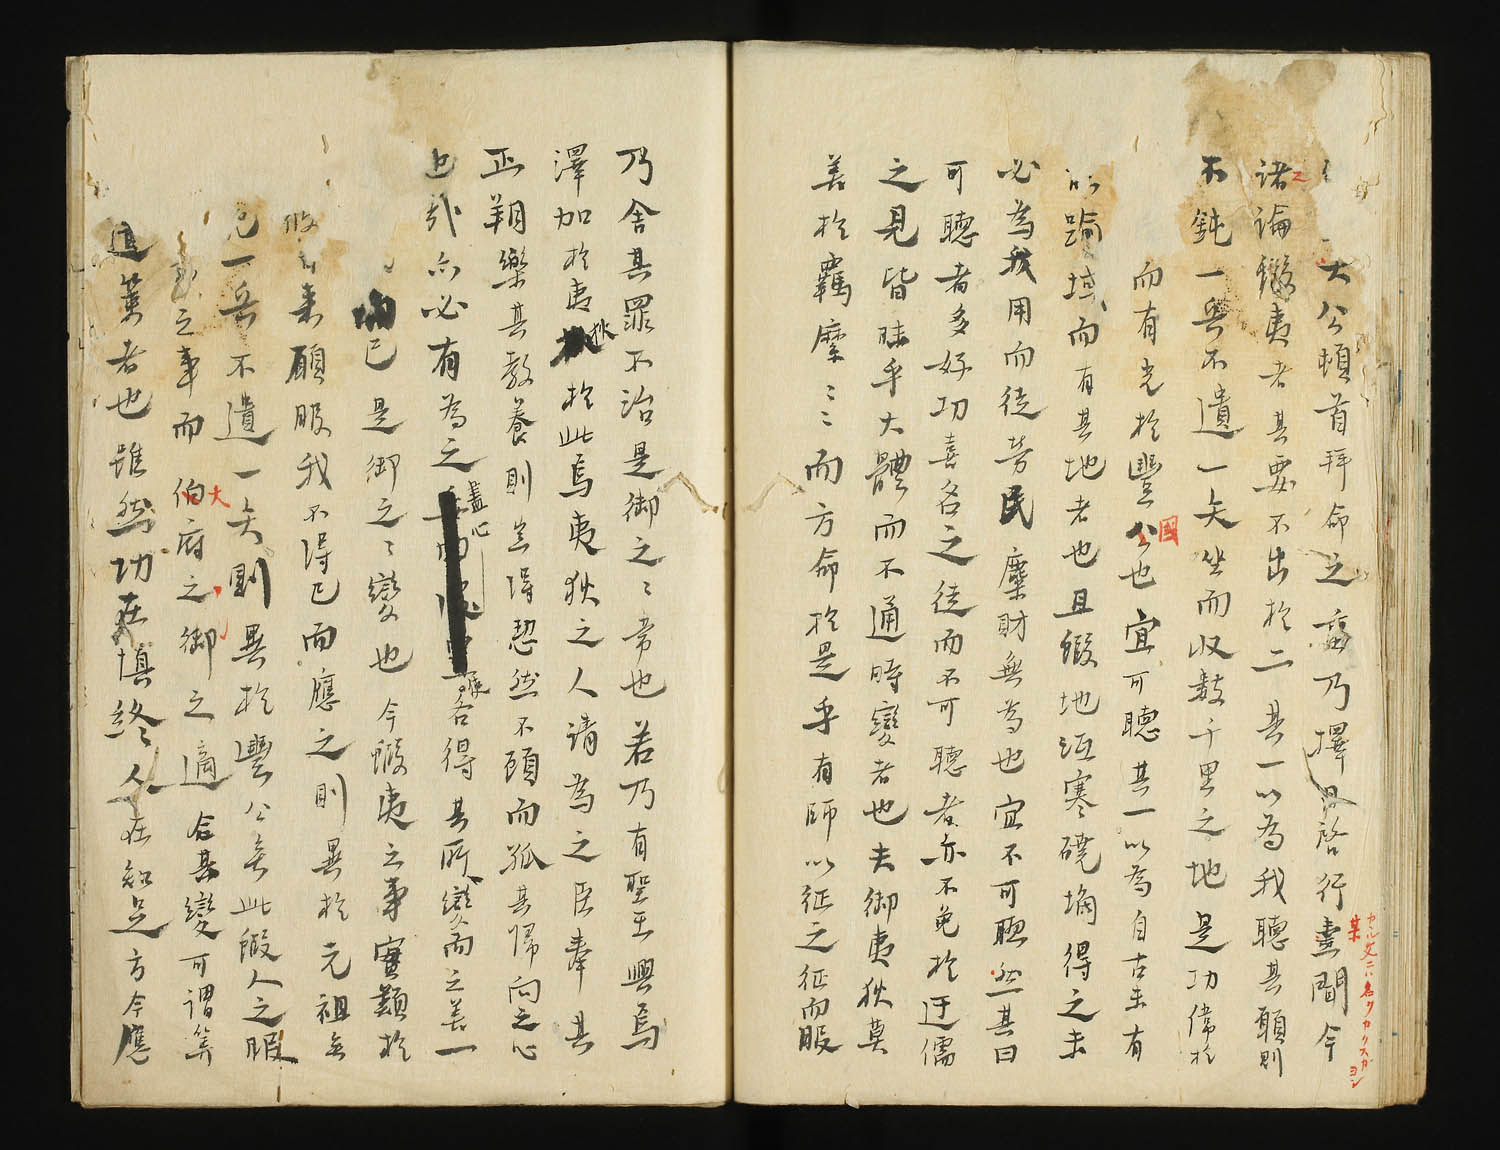 大公頓首拜命之辱乃擇日啓行盡聞今
諸論蝦夷者其要不出於二其一以為我聽其願則
不鈍一兵不遺一矢坐而収数千里之地是功偉於
而有光於豐國公也宜可聽其一以為自古未有
踰域而有其地者也且蝦地沍寒磽埆得之未
必為我用而徒労民糜財無為也宜不可聴然其曰
可聴者多好功喜名之徒而不可聴者亦不免於迂儒
之見皆昧乎大體而不通時變者也夫御夷狄莫
善於羈縻〻〻而方命於是乎有師以征之征而服
乃舍其罪不治是御之〻常也若乃有聖王興焉
澤加於夷狄於此焉夷狄之人請為之臣奉其
正朔樂其教養則無得恝然不顧而孤其帰向之心
也然亦必有為之盡心各得其所變而之善一
已是御之〻變也今蝦夷之事實類於
來願服我不得已而應之則異於元祖無
一兵不遺一矢則異於豐公無此蝦人之服
之事而伯大府之御之適合其變可謂筭
遺策者也雖然功在慎終人在知足方今應
某
カル文ニハ名タカクスガヨシ